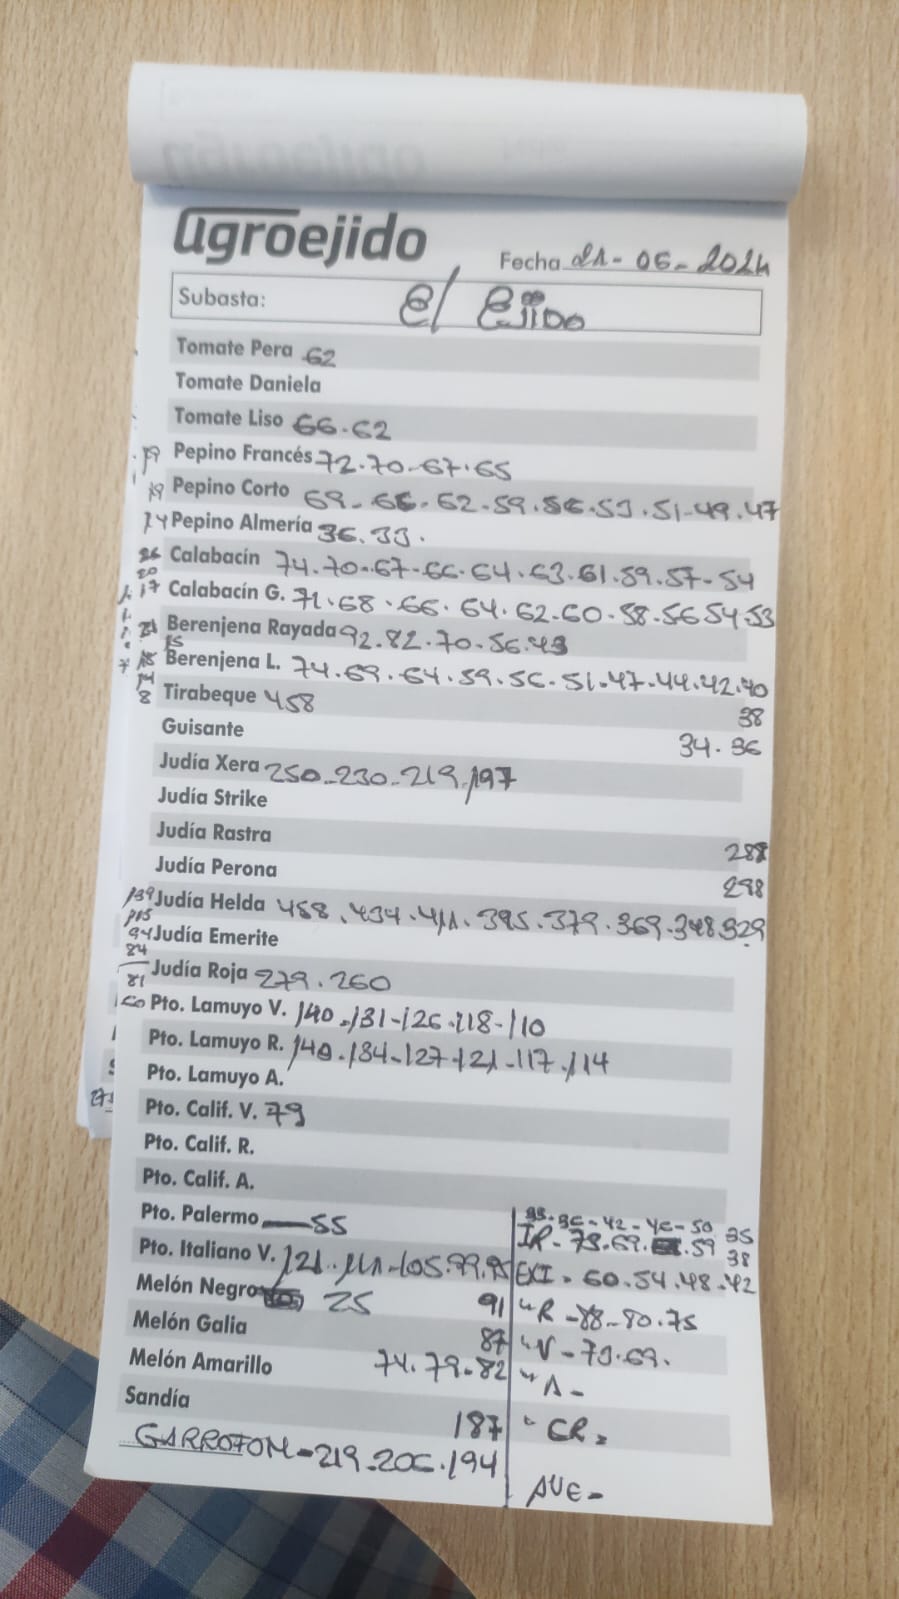 agroejido
Fecha 21-06-2024
Subasta: El Ejido
Tomate Pera 62
Tomate Daniela
Tomate Liso 66.62
19 Pepino Francés 72.70-67.65
19 Pepino Corto 69-66.62.59.56.53.51-49.47
24 Pepino Almería 36.33.
26 Calabacín 74.70-67-66.64.63.61.59.57-54
20
17 Calabacín G. 71.68.66.64.62.60.58.56 54.53
21 Berenjena Rayada 92.82.70-56.43
15
Berenjena L. 74.69.64.59.56.51.47-44.42.40
38
34.36
14
8 Tirabeque 458
Guisante
Judía Xera 250-230-219-197
Judía Strike
Judía Rastra
Judía Perona
288
298
139 Judía Helda 458.434.411.395.379.369.348.329
115
94 Judía Emerite
84
81 Judía Roja 279.260
Pto. Lamuyo V. 140-131-126.118-110
Pto. Lamuyo R. 140.134-127-121-117.114
Pto. Lamuyo A.
Pto. Calif. V. 79
Pto. Calif. R.
Pto. Calif. A.
Pto. Palermo 55
Pto. Italiano V. 121.111-105.99.95
91
87
74.79-82
Melón Negro 25
Melón Galia
Melón Amarillo
Sandía
187
GARROFON-219-206.194
36-42-46-50
35
38
73.69. .59
EXI. 60.54.48.42
" R-88-80.75
" V-73.69.
" A-
" CR-
AVE-